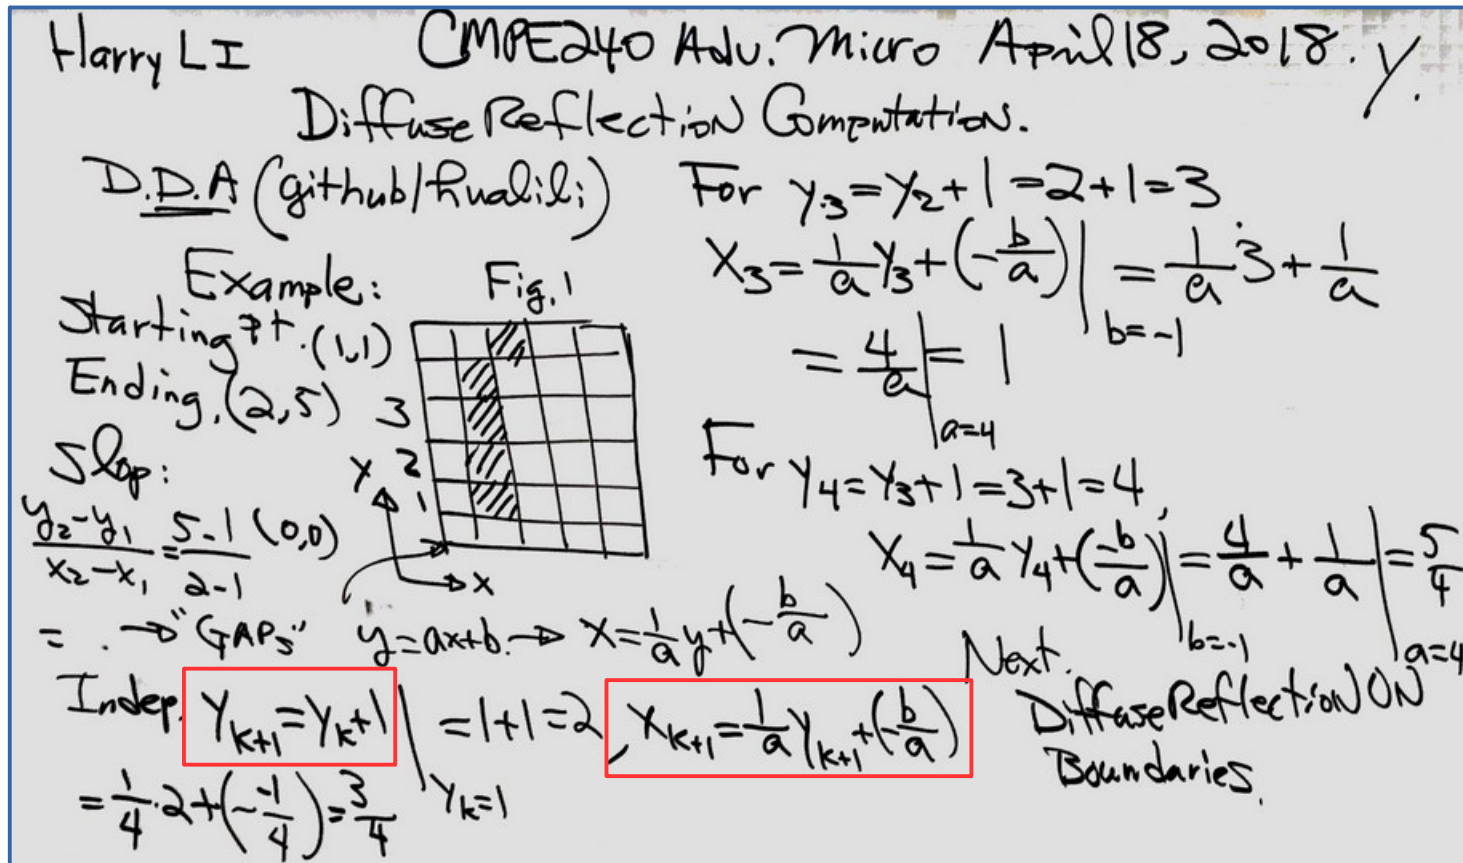 Harry LI CMPE240 Adv. Micro April 18, 2018. y.
Diffuse Reflection Computation.
D.D.A (github/hualili)
Example:
Starting pt. (1,1)
Ending, (2,5)
Slop:
\frac{y_2-y_1}{x_2-x_1} = \frac{5-1}{2-1}
= . → "GAPs"
Fig. 1
3
2
1
Y
X
(0,0)
y=ax+b. → x=\frac{1}{a}y+(-\frac{b}{a})
Indep. Y_{k+1}=Y_k+1 |_{Y_k=1} =1+1=2, X_{k+1}=\frac{1}{a}Y_{k+1}+(-\frac{b}{a})
=\frac{1}{4}·2+(-\frac{-1}{4})=\frac{3}{4}
For y_3=y_2+1=2+1=3
X_3=\frac{1}{a}Y_3+(-\frac{b}{a})|_{b=-1} =\frac{1}{a}3+\frac{1}{a}
=\frac{4}{a}|_{a=4}=1
For Y_4=Y_3+1=3+1=4,
X_4=\frac{1}{a}Y_4+(\frac{-b}{a})|_{b=-1}=\frac{4}{a}+\frac{1}{a}|_{a=4}=\frac{5}{4}
Next.
Diffuse Reflection ON
Boundaries.